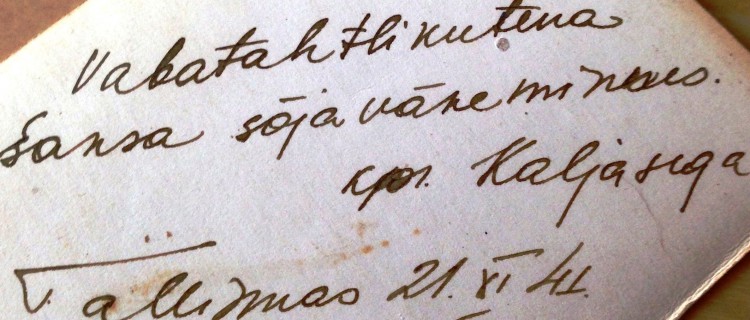 Vabatahtlikutena
Saksa sõjaväke minnes.
kpr. Kaljasega
Tallinnas 21. XI 41.